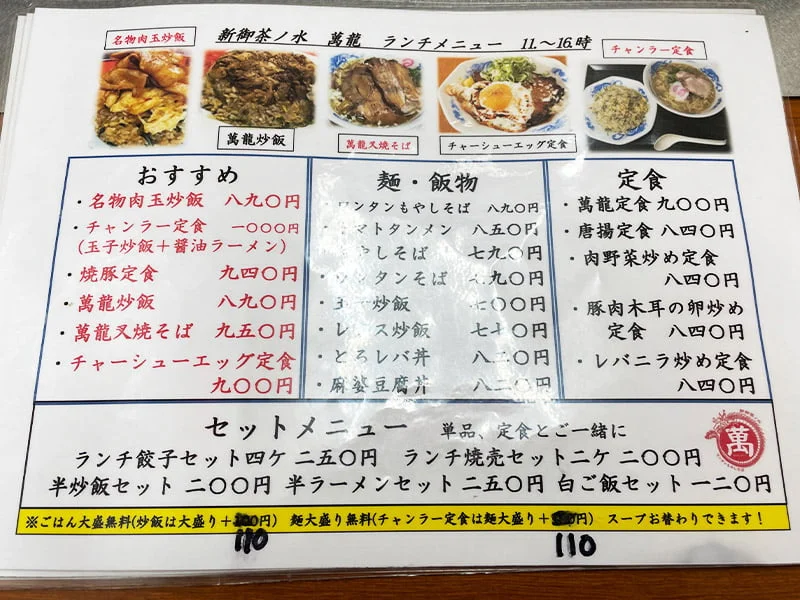 新御茶ノ水 萬龍 ランチメニュー 11.〜16.時
名物肉玉炒飯
萬龍炒飯
萬龍叉焼そば
チャーシューエッグ定食
チャンラー定食
おすすめ
・名物肉玉炒飯 八九〇円
・チャンラー定食 一〇〇〇円
(玉子炒飯+醤油ラーメン)
・焼豚定食 九四〇円
・萬龍炒飯 八九〇円
・萬龍叉焼そば 九五〇円
・チャーシューエッグ定食
九〇〇円
麺・飯物
・ワンタンもやしそば 八九〇円
・トマトタンメン 八五〇円
やしそば 七九〇円
・ワンタンそば 九〇円
・炒飯 七〇〇円
・レタス炒飯 七七〇円
・とろレバ丼 八二〇円
・麻婆豆腐丼 八二〇円
定食
・萬龍定食 九〇〇円
・唐揚定食 八四〇円
・肉野菜炒め定食
八四〇円
・豚肉木耳の卵炒め
定食 八四〇円
・レバニラ炒め定食
八四〇円
セットメニュー 単品、定食とご一緒に
ランチ餃子セット四ケ 二五〇円 ランチ焼売セット二ケ 二〇〇円
半炒飯セット 二〇〇円 半ラーメンセット 二五〇円 白ご飯セット 一二〇円
萬
※ごはん大盛無料(炒飯は大盛り+110円) 麺大盛り無料(チャンラー定食は麺大盛り+110円) スープお替わりできます!